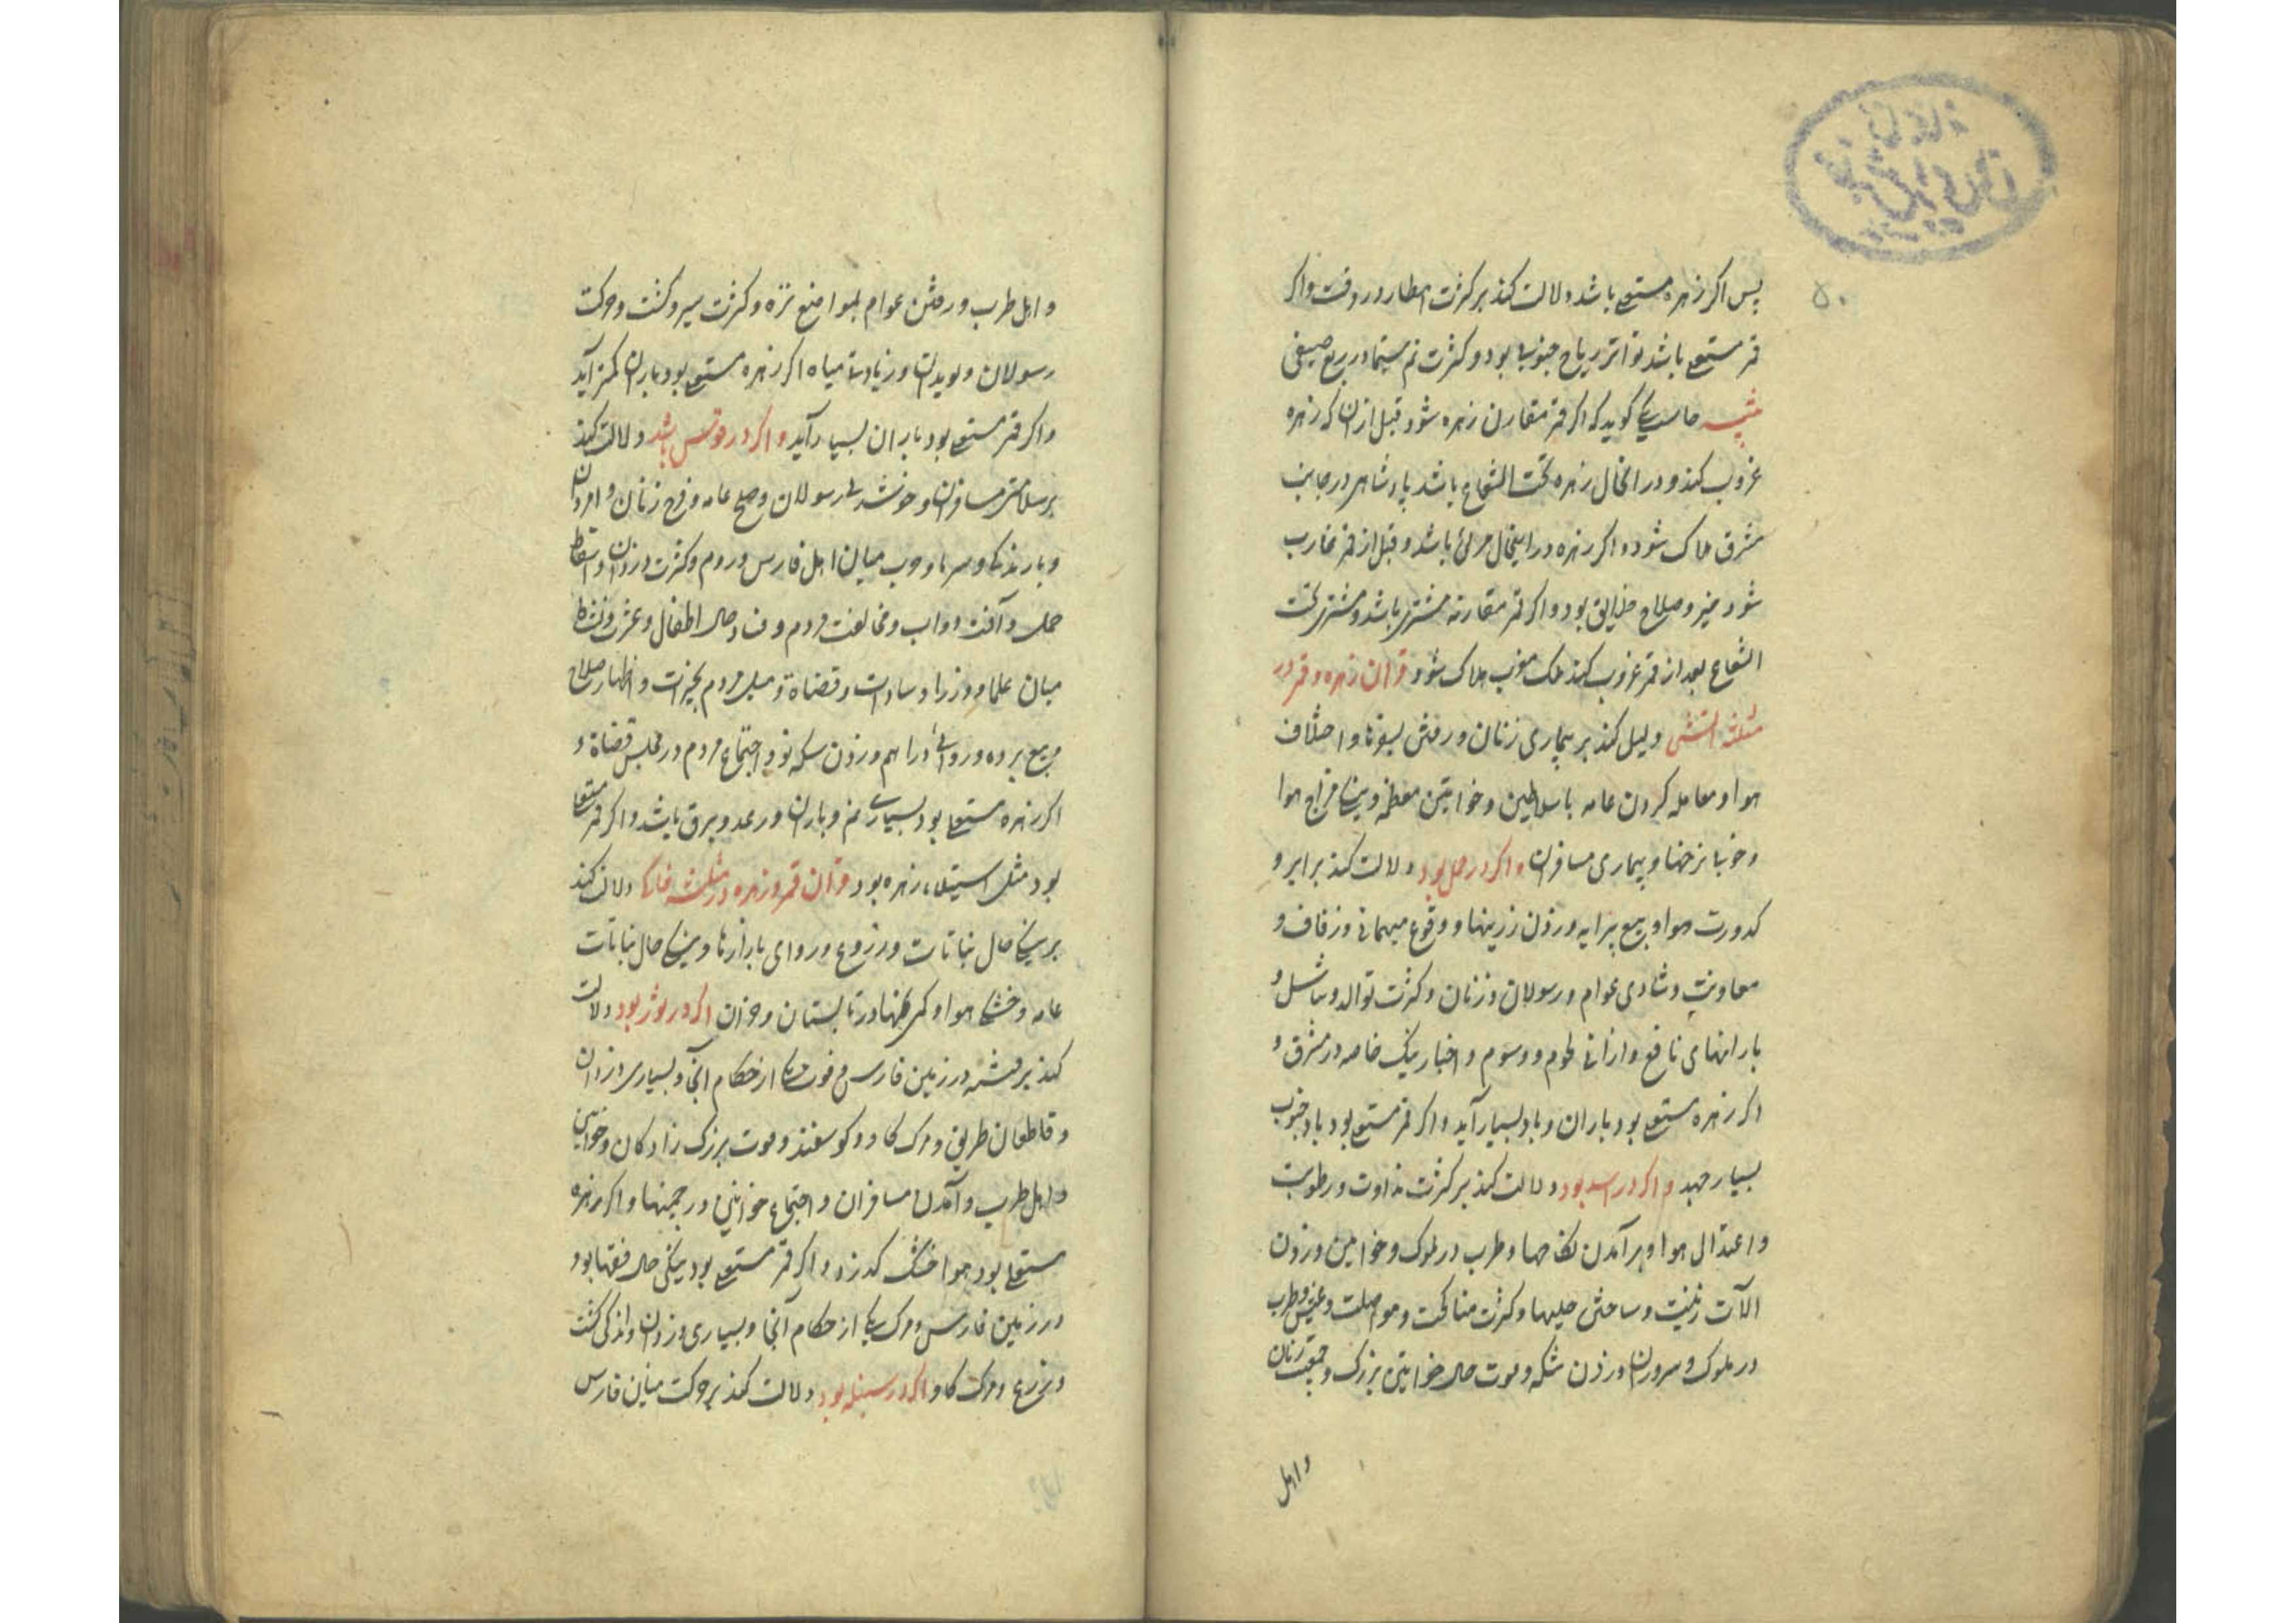 ۵۰
پس اکر زهره مستعلی باشد دلالت کند بر کثرت امطار در وقت واکر
قمر مستعلی باشد تواتر ریاح جنوب بود وکثرت نم سیما در ربع صیفی
کوید که اکر قمر مقارن زهره شود قبل ازان که زهره
غروب کند و در انحال زهره تحت الشعاع باشد پادشاهی در جانب
مشرق هلاک شود واکر زهره در اینحال مرئی باشد و قبل از قمر غارب
شود خیر وصلاح خلایق بود واکر قمر مقارنه مشتری باشد و مشتری تحت
الشعاع بعد از قمر غروب کند ملک مغرب هلاک شود قران زهره و قمر در
مثلثه آتشی دلیل کند بر بیماری زنان ورفتن بسفرها و اختلاف
هوا ومعامله کردن عامه باسلاطین وخواتین معظمه ونیکی مزاج هوا
وخوبا نرخها وبیماری مسافران واکر در حمل بود دلالت کند بر ابر و
کدورت هوا وبیع پیرایه وزدن زرینها ووقوع میهمانی وزفاف و
معاونت وشادی عوام ورسولان وزنان وکثرت توالد وتناسل و
بارانهای نافع وارزانی لحوم ودسوم واخبار نیک خاصه در مشرق و
اکر زهره مستعلی بود باران وباد بسیار آید واکر قمر مستعلی بود باد جنوب
بسیار جهد واکر در اسد بود دلالت کند بر کثرت نداوت ورطوبت
واعتدال هوا وبر آمدن نکاحها وطرب در ملوک وخواتین وزدن
آلات زینت وساختن حلیها وکثرت مناکحت ومواصلت وعیش وطرب
در ملوک وسروران وزدن سکه وموت خواتین بزرک وجمعیت زنان
واهل
واهل طرب ورفتن عوام بمواضع نزه وکثرت سیر وکشت وحرکت
رسولان وبریدان وزیادتی میاه اکر زهره مستعلی بود باران کمتر آید
واکر قمر مستعلی بود باران بسیار آید واکر در قوس باشد دلالت کند
بر سلامتی مسافران وخوشدلی رسولان وصلح عامه وفرح زنان وامردان
وبارندکی وسرما وحرب میان اهل فارس وروم وکثرت دزدان واسقاط
حمل وآفت دواب ومخالفت مردم وفساد حال اطفال
میان علما ووزرا وسادات وقضاة ومیل مردم بخیرات واظهار صلاح
وبیع برده وروائی دراهم وزدن سکه نو واجتماع مردم در مجلس قضاة و
اکر زهره مستعلی بود بسیاری نم وباران ورعد وبرق باشد واکر قمر مستعلی
بود مثل استیلاء زهره بود قران قمر وزهره در مثلثه خاکی دلالت کند
بر نیکی حال نباتات وزروع وروای بازارها ونیکی حال نباتات
عامه وخشکی هوا وکمی نمها در تابستان وخزان اکر در ثور بود دلالت
کند بر فتنه در زمین فارس وفوت یکی از حکام آنجا وبسیاری دزدان
وقاطعان طریق ومرک کاو وکوسفند وموت بزرک زادکان وخواتین
واهل طرب وآمدن مسافران واجتماع خواتین در چمنها واکر زهره
مستعلی بود هوا خشک کذرد واکر قمر مستعلی بود نیکی حال فقها بود
در زمین فارس ومرک یکی از حکام آنجا وبسیاری دزدان واندکی کشت
وزرع ومرک کاو واکر در سنبله بود دلالت کند بر حرکت میان فارس